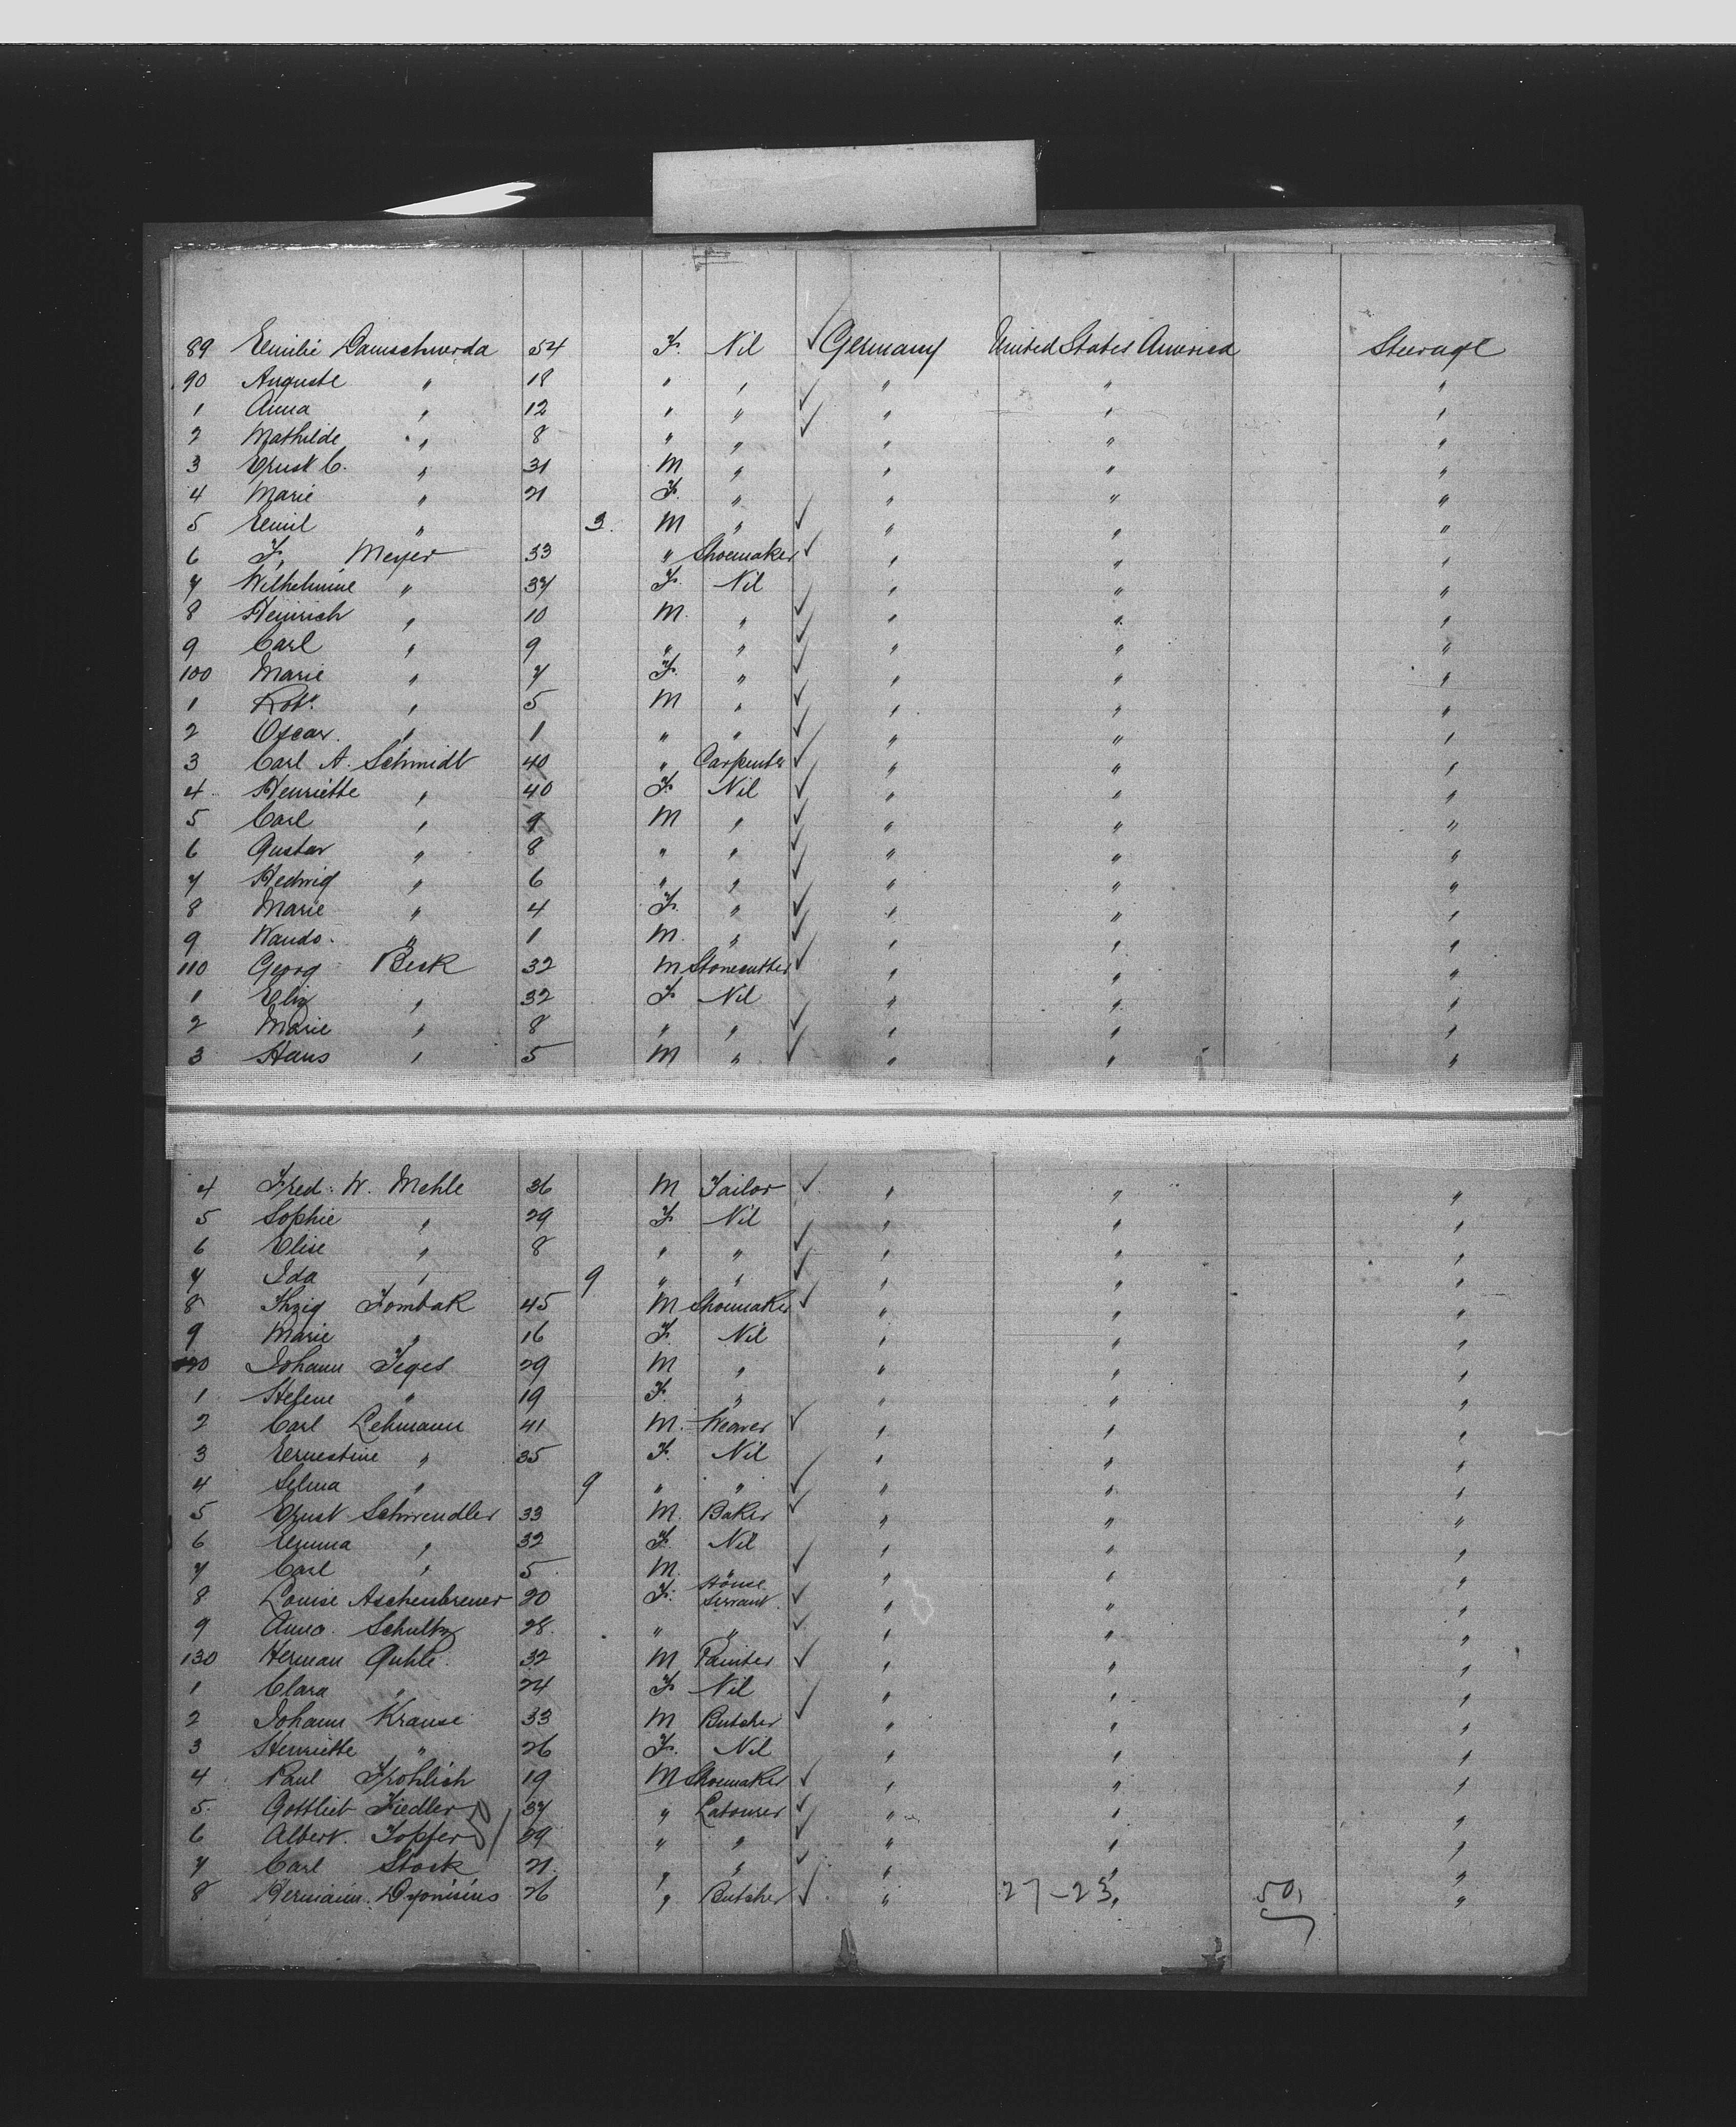 89 Emilie Damschwerda 54 F. Nil ✓ Germany United States America Steerage
90 Auguste " 18 " " ✓ " " "
1 Anna " 12 " " ✓ " " "
2 Mathilde " 8 " " " " "
3 Ernst C. " 31 M " " " "
4 Marie " 21 F. " " " "
5 Emil " 3. M " ✓ " " "
6 F. Meyer 33 " Shoemaker ✓ " " "
7 Wilhelmine " 37 F. Nil " " "
8 Heinrich " 10 M. " ✓ " " "
9 Carl " 9 " " ✓ " " "
100 Marie " 7 F. " ✓ " " "
1 Robt. " 5 M " ✓ " " "
2 Oscar. " 1 " " ✓ " " "
3 Carl A. Schmidt 40 " Carpenter ✓ " " "
4 Henriette " 40 F. Nil ✓ " " "
5 Carl " 9 M " ✓ " " "
6 Gustav " 8 " " ✓ " " "
7 Hedwig " 6 " " ✓ " " "
8 Marie " 4 F. " ✓ " " "
9 Wando. " 1 M. " ✓ " " "
110 Georg Beck 32 M Stonecutter ✓ " " "
1 Eliz " 32 F Nil " " "
2 Marie " 8 " " ✓ " " "
3 Hans " 5 M " ✓ " " "
4 Fred. W. Mehle 36 M Tailor ✓ " " "
5 Sophie " 29 F Nil " " "
6 Elise " 8 " " ✓ " " "
7 Ida " 9 " " ✓ " " "
8 Tombak 45 M Shoemaker ✓ " " "
9 Marie " 16 F. Nil " " "
120 Johann Teges 29 M " " " "
1 Helene " 19 F. " " " "
2 Carl Lehmann 41 M. Weaver ✓ " " "
3 Ernestine " 35 F. Nil " " "
4 Selma " 9 " " ✓ " " "
5 Ernst Schwendler 33 M. Baker ✓ " " "
6 Emma " 32 F. Nil " " "
7 Carl " 5 M. " ✓ " " "
8 Louise Aschenbrener 20 F. House Servant ✓ " " "
9 Anna. Schultz 28. " " ✓ " " "
130 Herman Quhle 32 M Painter ✓ " " "
1 Clara " 24 F Nil " " "
2 Johann Krause 33 M Butcher ✓ " " "
3 Henriette " 26 F. Nil " " "
4 Paul Frohlich 19 M Shoemaker ✓ " " "
5. Gottlieb Fiedler 37 " Labourer ✓ " " "
6 Albert. Topfer 29 " " ✓ " " "
7 Carl Stock 21. " " ✓ " " "
8 Hermann. Dyonisius 26 " Butcher ✓ " 27-23 " 50, "